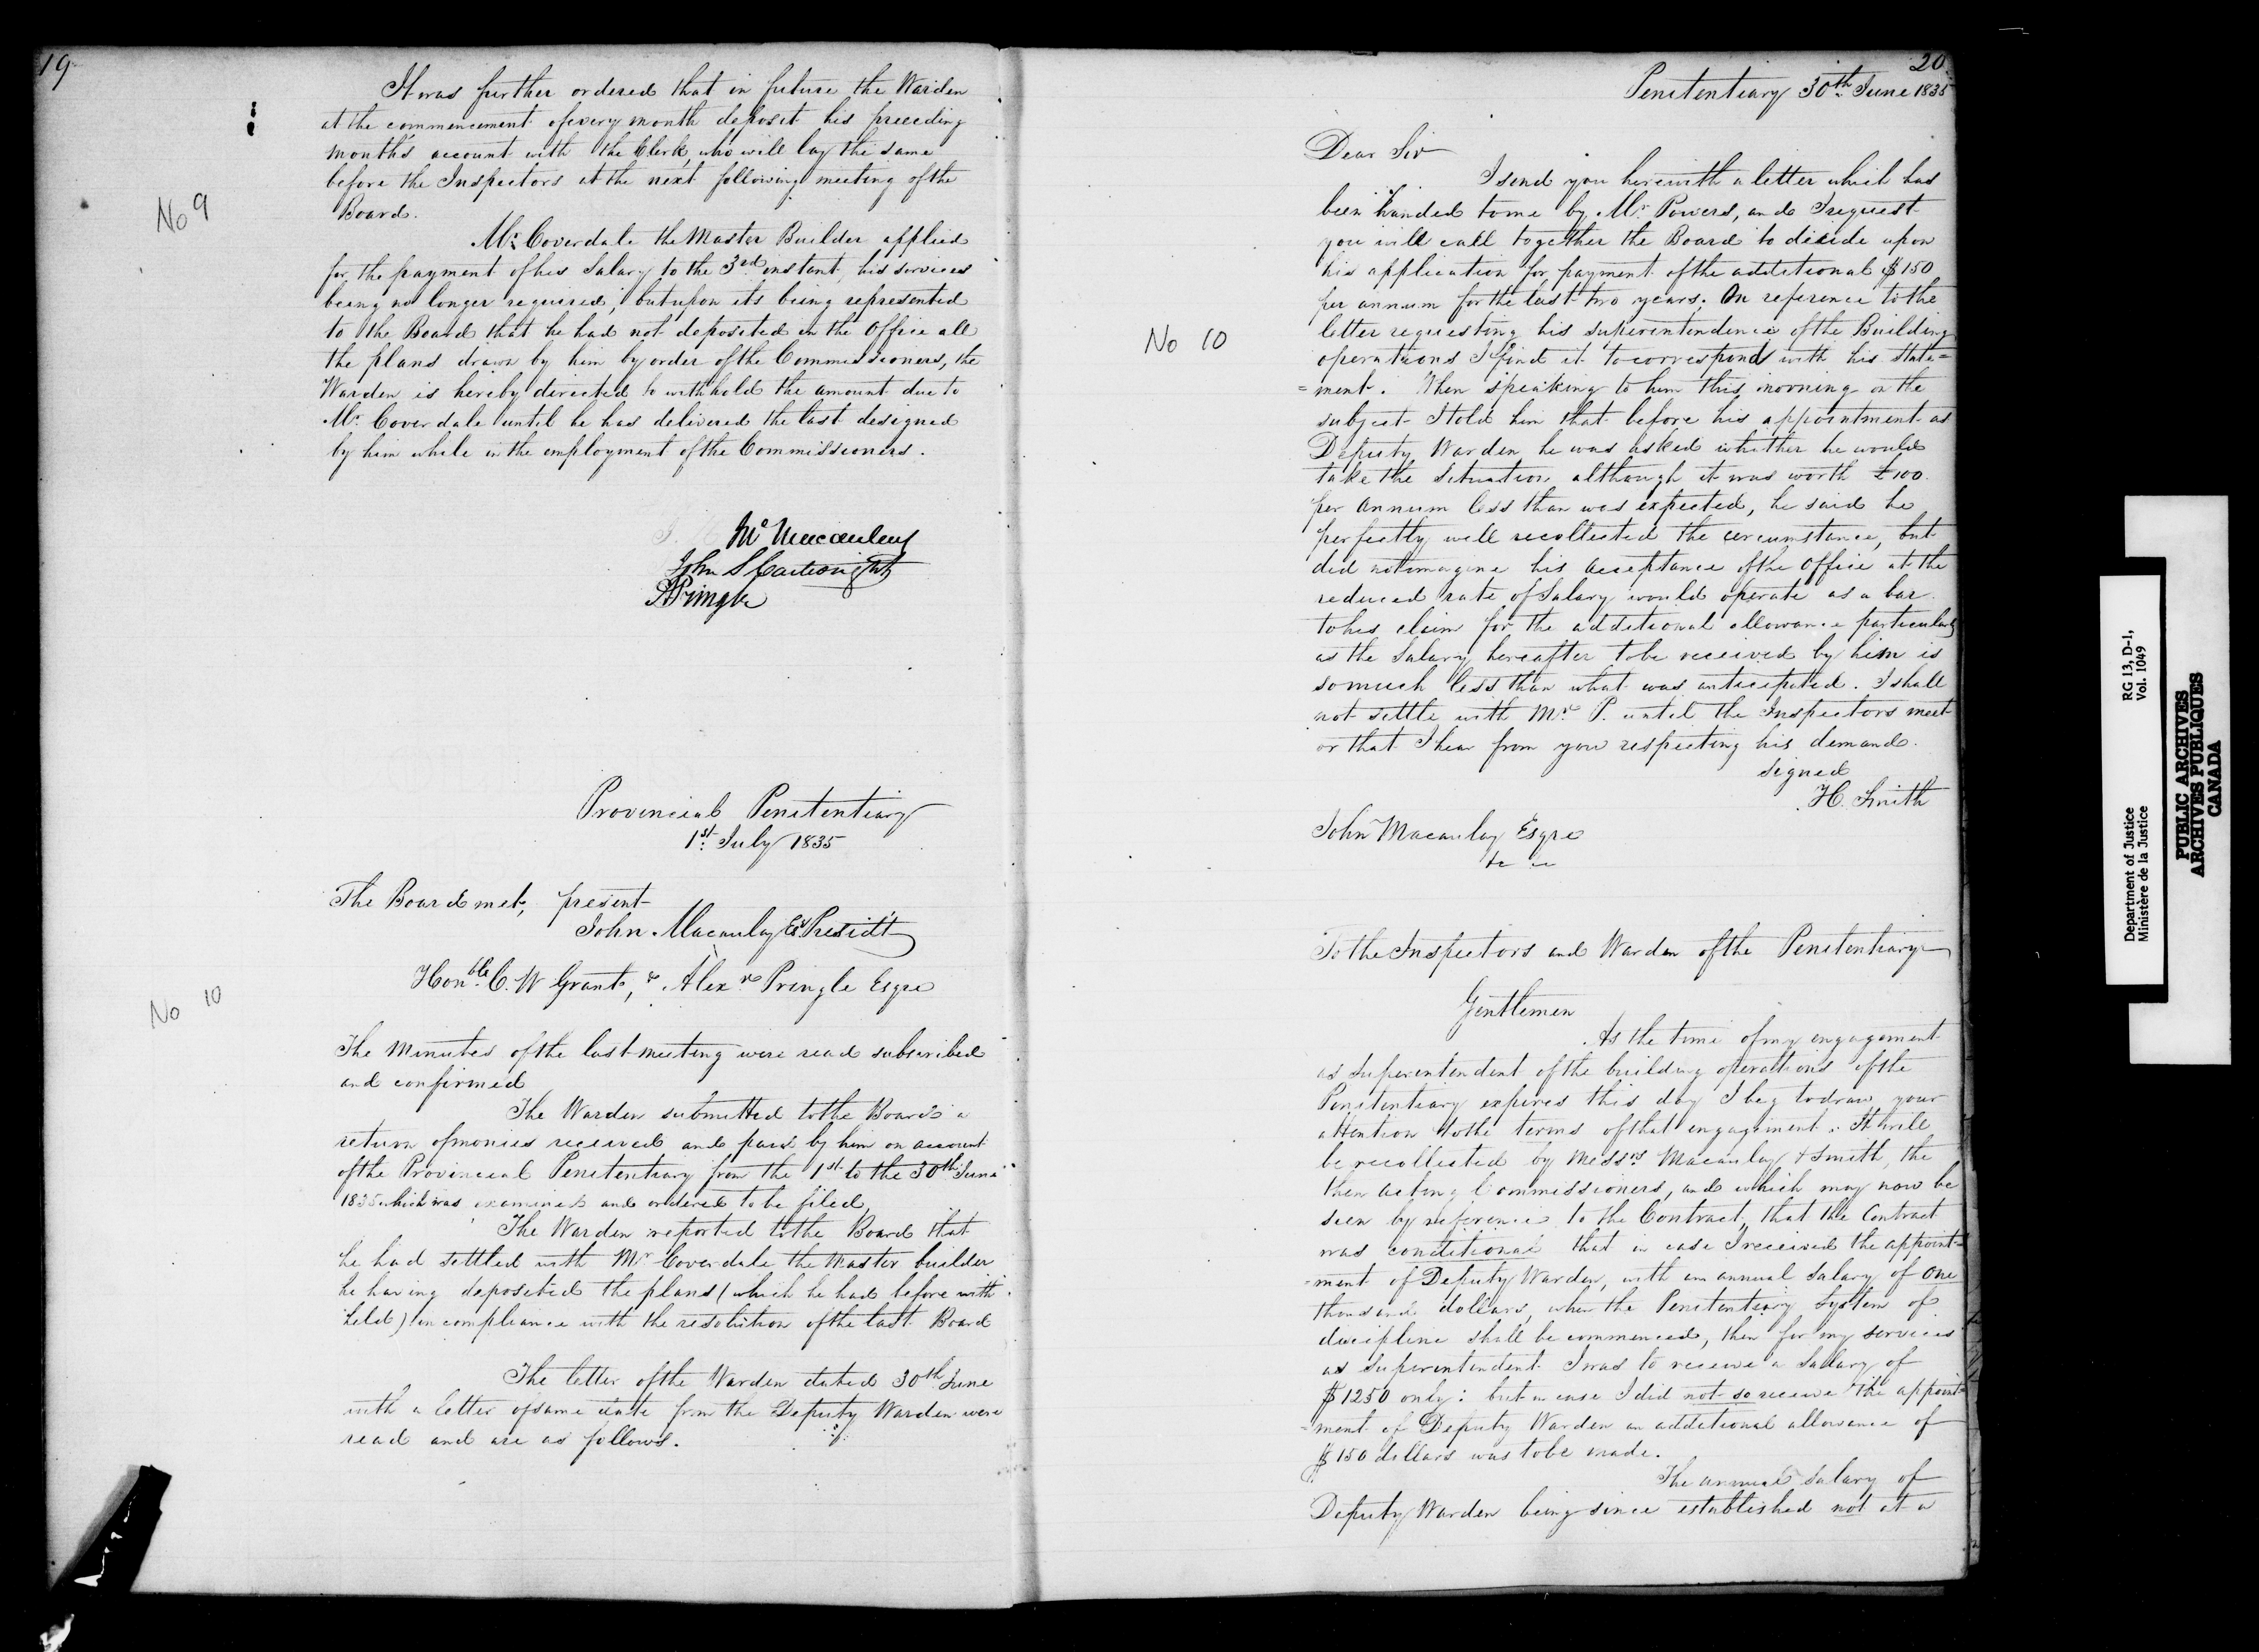 19
It was further ordered that in future the Warden
at the commencement of every month deposit his preceding
month's account with the Clerk, who will lay the same
before the Inspectors at the next following meeting of the
Board.
No 9
Mr. Coverdale the Master Builder applied
for the payment of his Salary to the 3rd instant, his services
being no longer required; but upon its being represented
to the Board that he had not deposited in the Office all
the plans drawn by him by order of the Commissioners, the
Warden is hereby directed to withhold the amount due to
Mr. Coverdale until he has delivered the last designed
by him while in the employment of the Commissioners.
Macaulay
John S Cartwright
A Pringle
Provincial Penitentiary
1st July 1835
The Board met, present
John Macaulay Esqr Presidt
Honble C. W Grant, & Alexr Pringle Esqre
No 10
The Minutes of the last meeting were read subscribed
and confirmed
The Warden submitted to the Board a
return of monies received and paid by him on account
of the Provincial Penitentiary from the 1st to the 30th June
1835 which was examined and ordered to be filed,
The Warden reported to the Board that
he had settled with Mr Coverdale the Master builder
he having deposited the plans (which he had before with
held) in compliance with the resolution of the last Board
The letter of the Warden dated 30th June
with a letter of same date from the Deputy Warden were
read and are as follows.
20
Penitentiary 30th June 1835
Dear Sir
I send you herewith a letter which has
been handed to me by Mr. Powers, and I request
you will call together the Board to decide upon
his application for payment of the additional $150
per annum for the last two years. On reference to the
letter requesting his superintendence of the Building
operations I find it to correspond with his state=
=ment. When speaking to him this morning on the
subject I told him that before his appointment as
Deputy Warden he was asked whether he would
take the Situation although it was worth £100
per annum less than was expected, he said he
perfectly well recollected the circumstance, but
did not imagine his acceptance of the Office at the
reduced rate of Salary would operate as a bar
to his claim for the additional allowance particularly
as the Salary hereafter to be received by him is
so much less than what was anticipated. I shall
not settle with Mr. P. until the Inspectors meet
or that I hear from you respecting his demand.
signed
H. Smith
No 10
John Macaulay Esqre
&c &c
To the Inspectors and Warden of the Penitentiary
Gentlemen
As the time of my engagement
as Superintendent of the building operations of the
Penitentiary expires this day I beg to draw your
attention to the terms of that engagement. It will
be recollected by Messrs Macaulay & Smith, the
then acting Commissioners, and which may now be
seen by reference to the Contract, that the Contract
was conditional that in case I received the appoint=
=ment of Deputy Warden, with an annual Salary of One
thousand dollars, when the Penitentiary System of
discipline shall be commenced, then for my services
as Superintendent I was to receive a Salary of
$1250 only: but in case I did not so receive the appoint=
=ment of Deputy Warden an additional allowance of
$150 dollars was to be made.
The annual Salary of
Deputy Warden being since established not at a
Department of Justice
Ministère de la Justice
RG 13, D-1,
Vol. 1049
PUBLIC ARCHIVES
ARCHIVES PUBLIQUES
CANADA